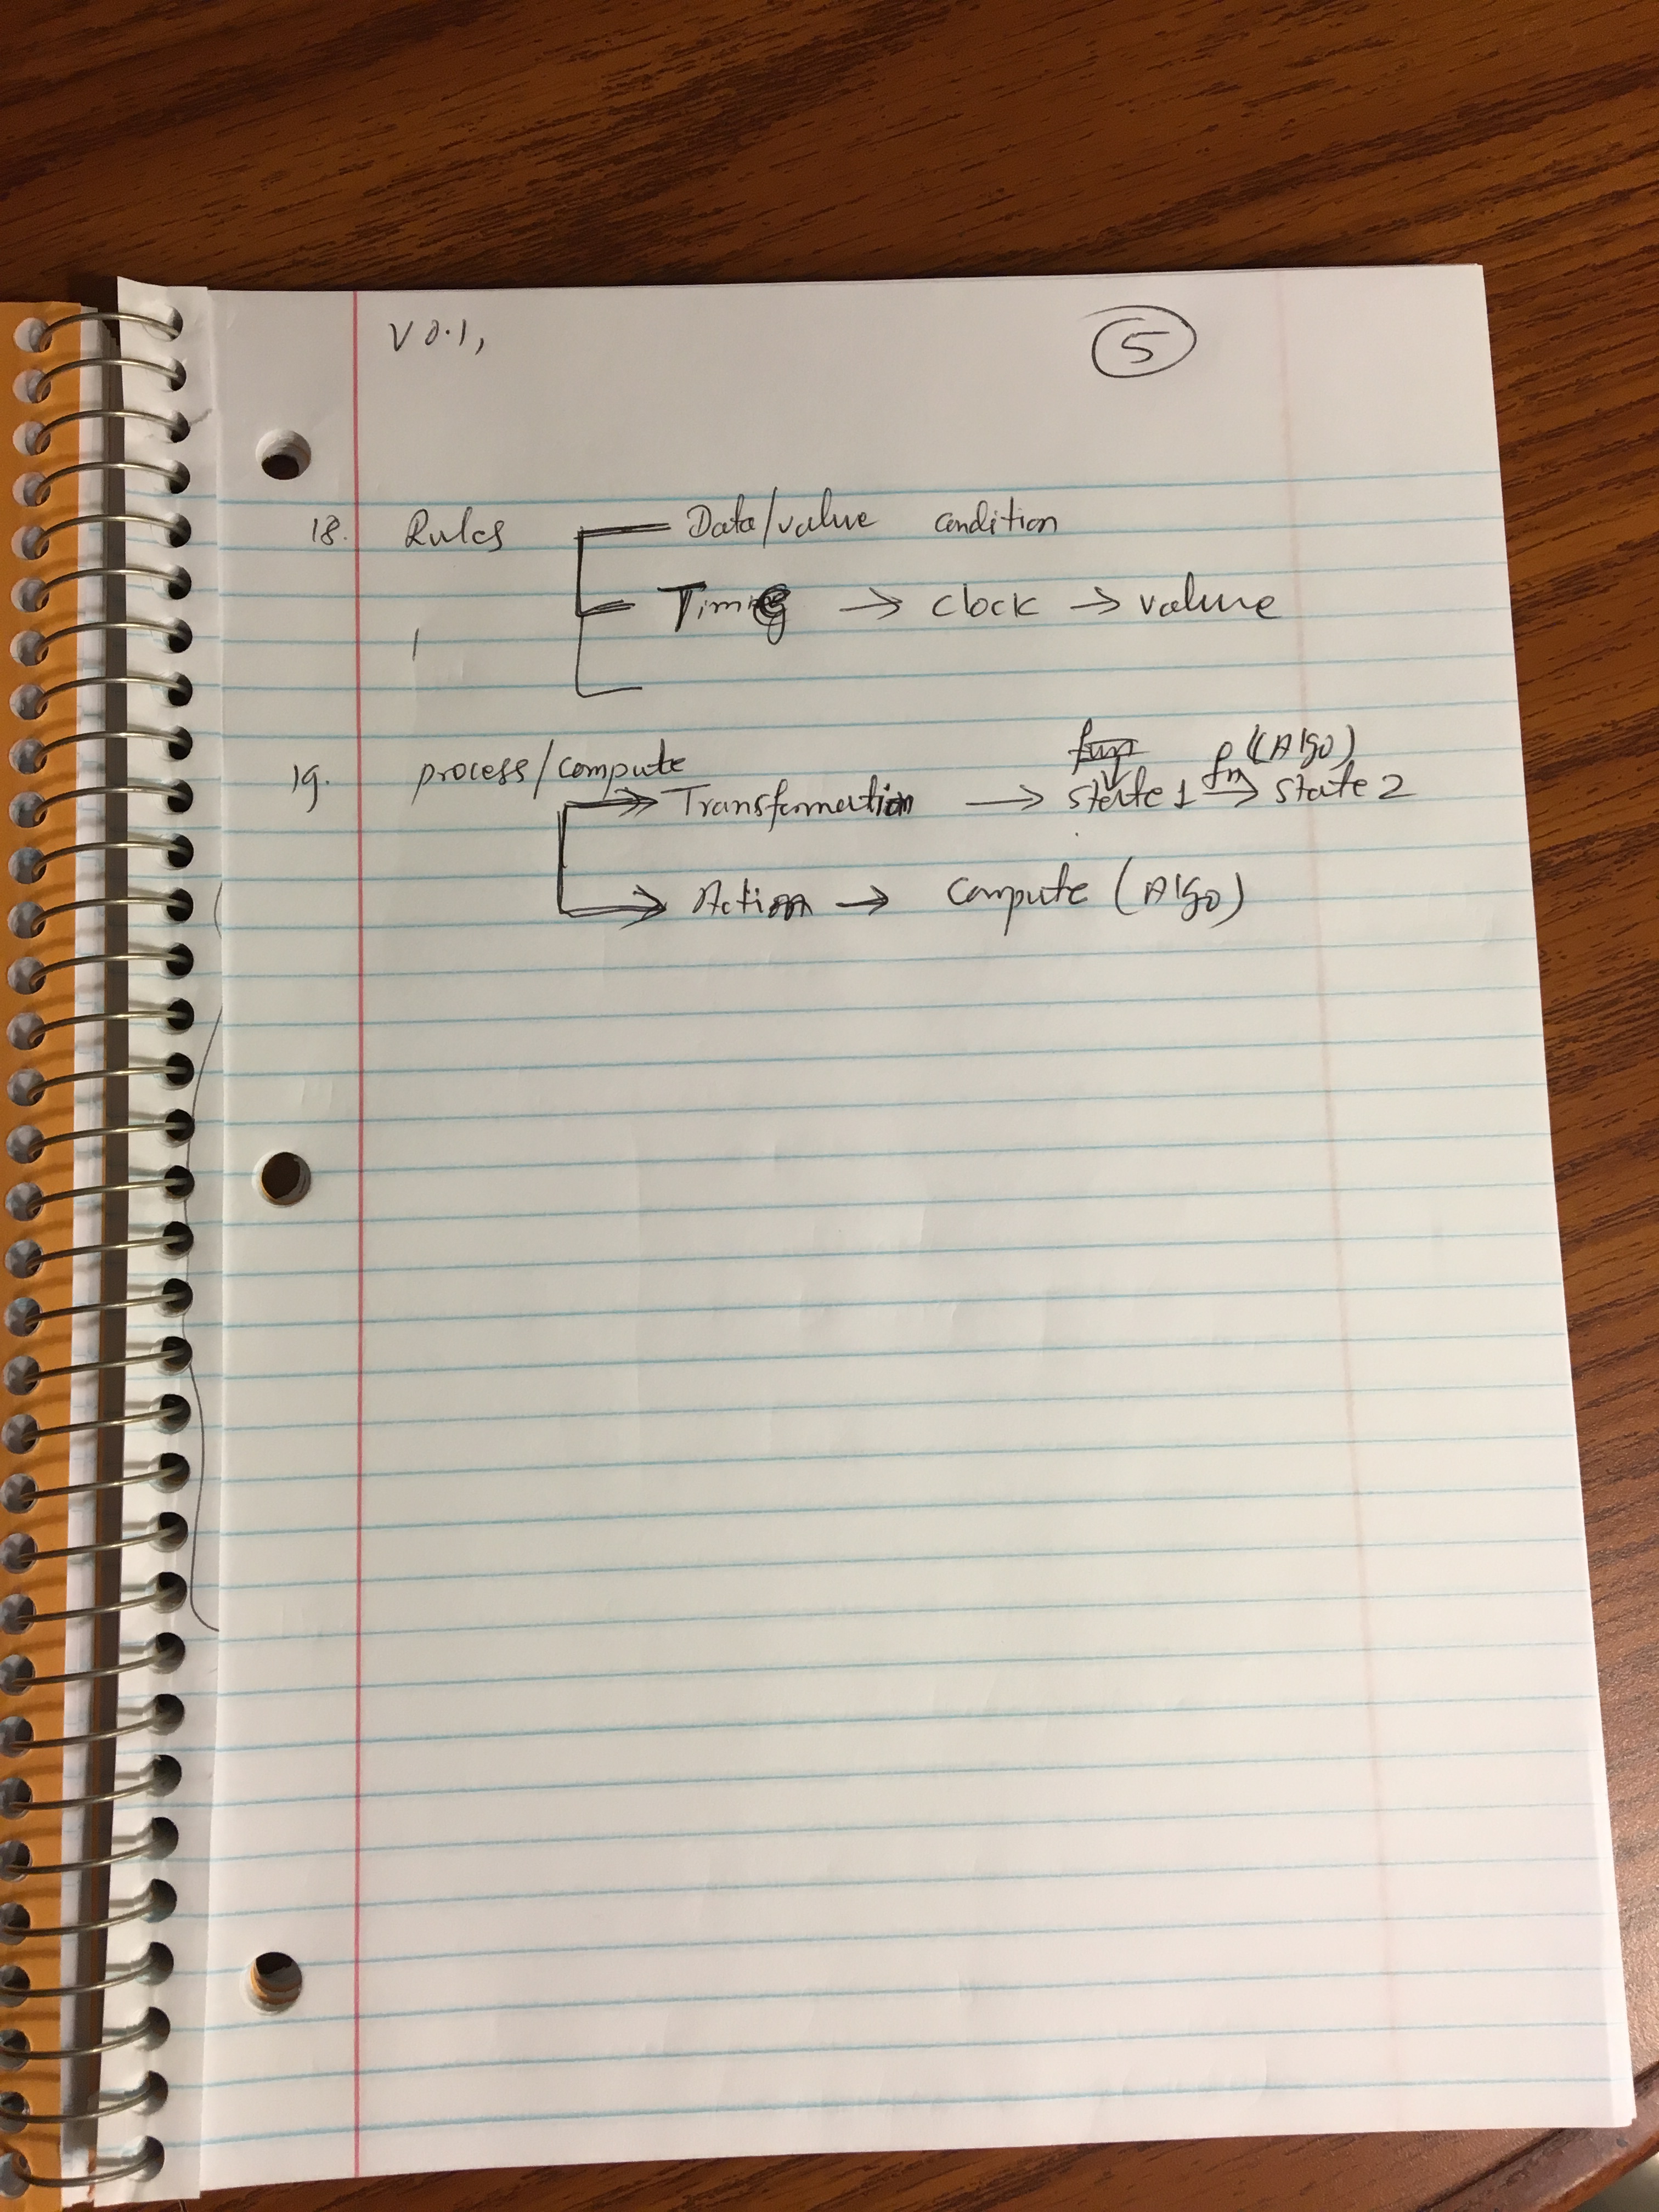 V 0.1, 5
18. Rules Data/value condition
Timing → clock → value
19. process/compute
fun fn (Algo)
Transformation → state 1 → state 2
Action → Compute (Algo)